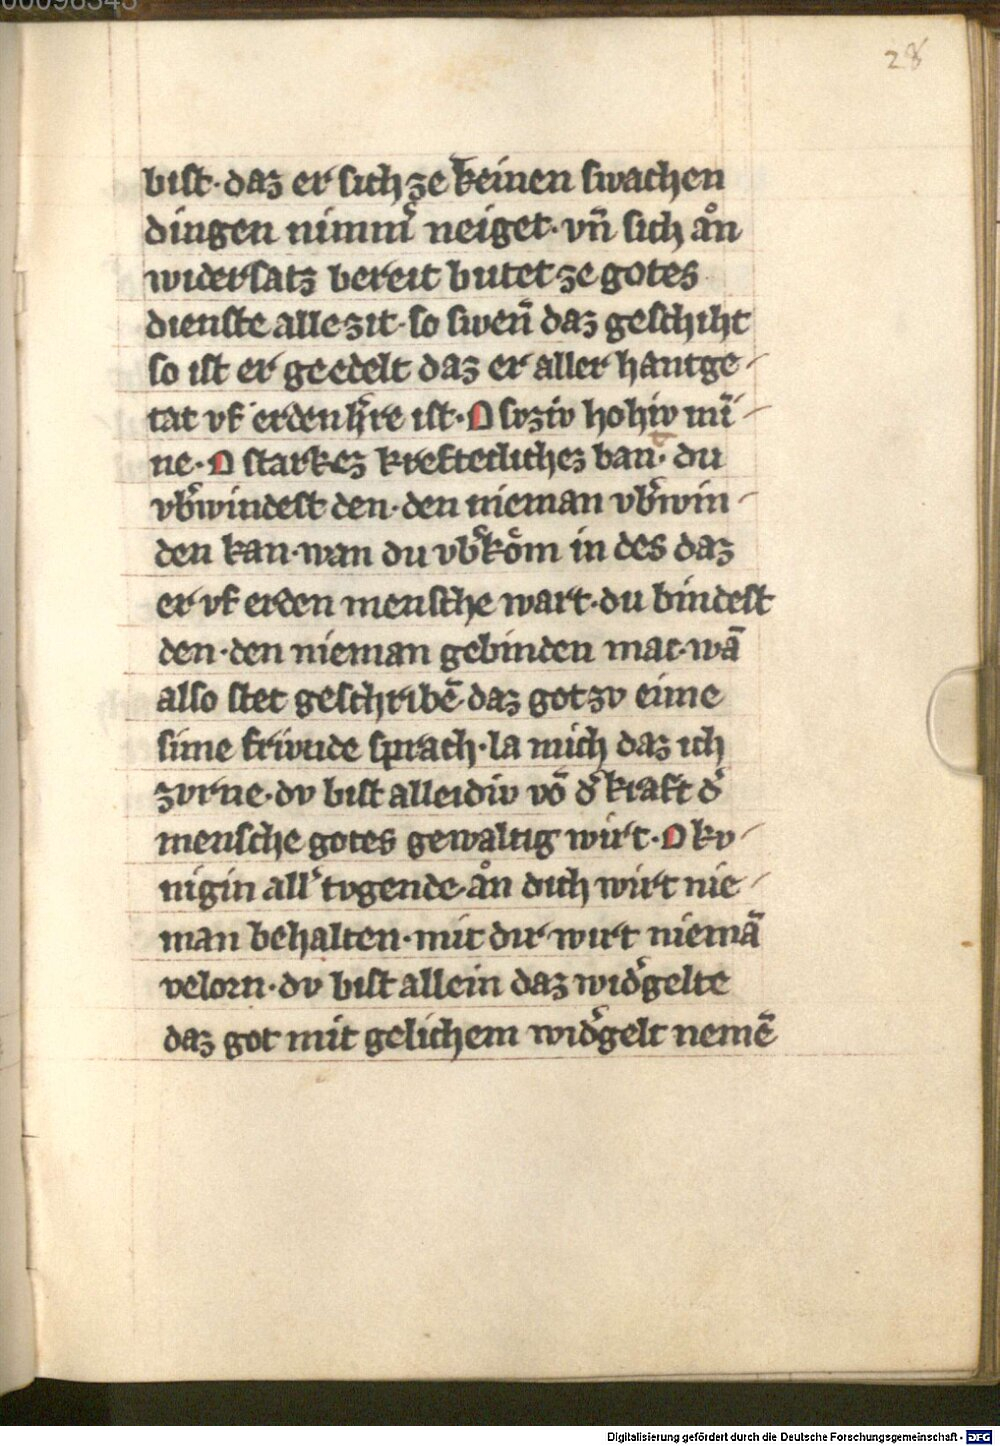 00096343
28
bist · daz er sich ze keinen swachen
dingen nim̄ neiget · vn̄ sich aͦn
widersatz bereit butet ze gotes
dienste alle zit · so swen̄ daz geschiht
so ist er geedelt daz er aller hantge-
tat vf erden h͛re ist · O svziv hohiv mī-
ne · O starkez kreftecliches ban̄ · du
vb͛windest den · den nieman vb͛win-
den kan · wan du vb͛koͤm in des daz
er vf erden mensche wart · du bindest
den · den nieman gebinden mac · wā
also stet geschribē daz got zv eime
sime frivnde sprach · la mich daz ich
zvrne · dv bist alleidiv vō d͛ kraft d͛
mensche gotes gewaltig wirt · O kv-
nigin all͛ tvgende aͦn dich wirt nie-
man behalten · mit dir wirt niemā
velorn · dv bist allein daz wid͛gelte
daz got mit gelichem wid͛gelt nemē
Digitalisierung gefördert durch die Deutsche Forschungsgemeinschaft - DFG